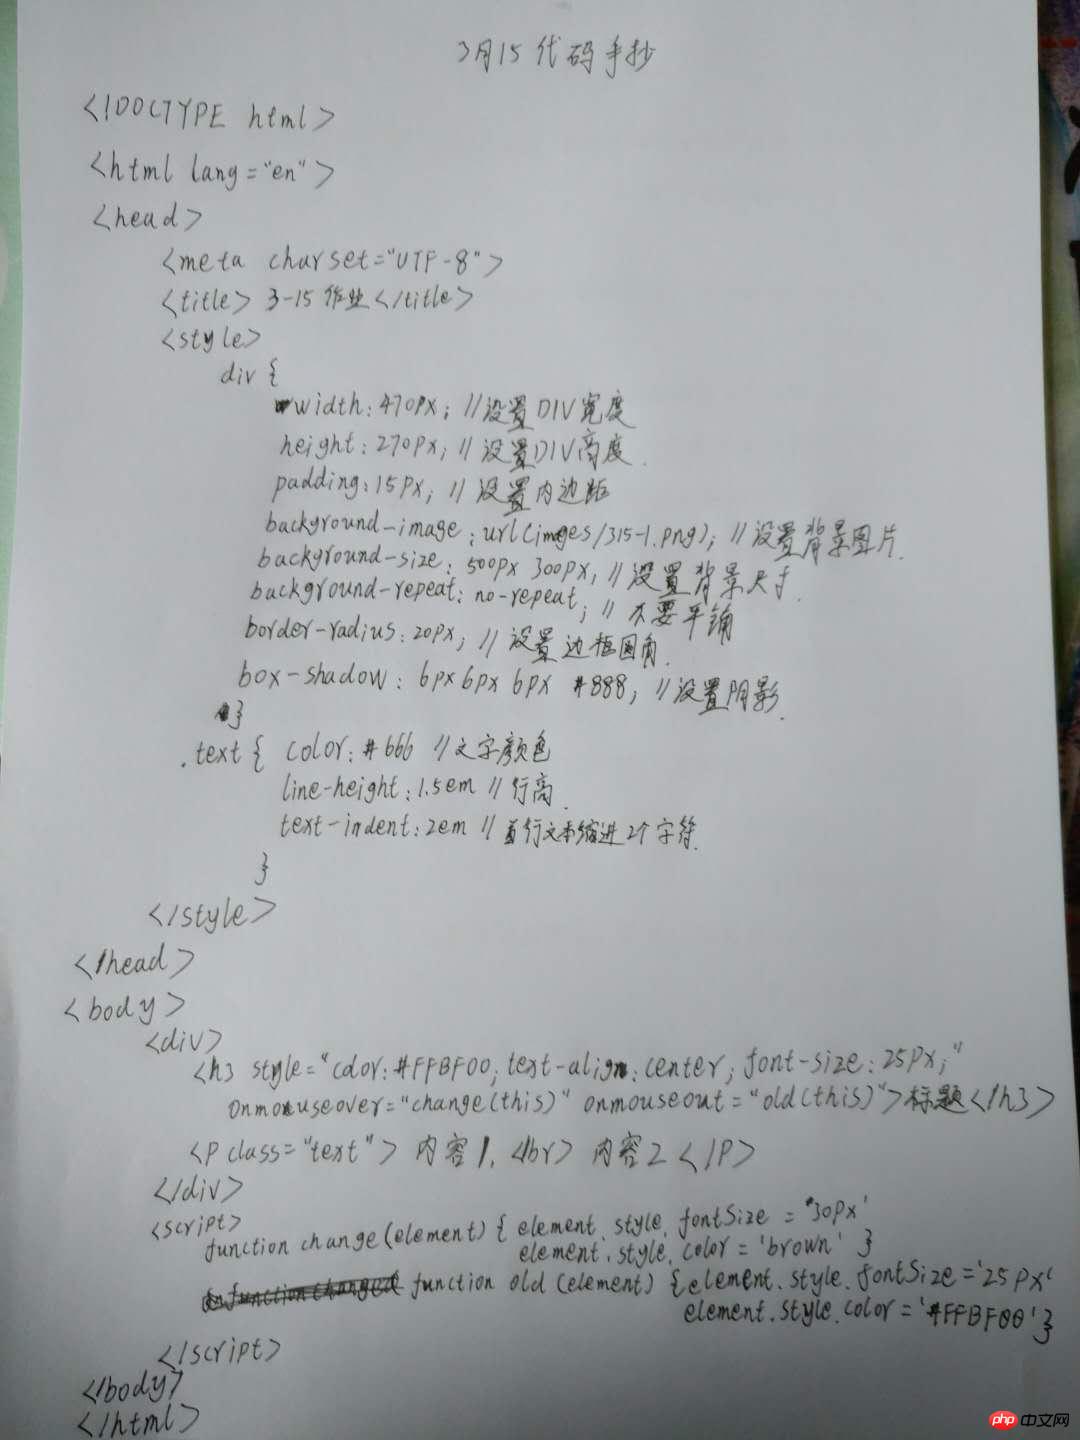 3月15 代码手抄
<!DOCTYPE html>
<html lang="en">
<head>
<meta charset="UTF-8">
<title> 3-15 作业</title>
<style>
div {
width: 470px; //设置DIV宽度
height: 270px; // 设置DIV高度.
padding: 15px; // 设置内边距
background-image: url(imges/315-1.png); //设置背景图片.
background-size: 500px 300px, // 设置背景尺寸.
background-repeat: no-repeat; // 不要平铺
border-radius: 20px; // 设置边框圆角.
box-shadow: 6px 6px 6px #888; //设置阴影.
}
.text { color: #666 //文字颜色
line-height: 1.5em // 行高.
text-indent: 2em // 首行文本缩进2个字符.
}
</style>
</head>
<body>
<div>
<h3 style="color: #FFBF00; text-align: center; font-size: 25px;"
onmouseover="change(this)" onmouseout="old(this)">标题</h3>
<p class="text"> 内容1. </br> 内容2 </p>
</div>
<script>
function change(element) { element.style.fontSize = '30px'
element.style.color = 'brown' }
function old (element) {element.style.fontSize ='25px'
element.style.color = '#FFBF00'}
</script>
</body>
</html>
php 中文网